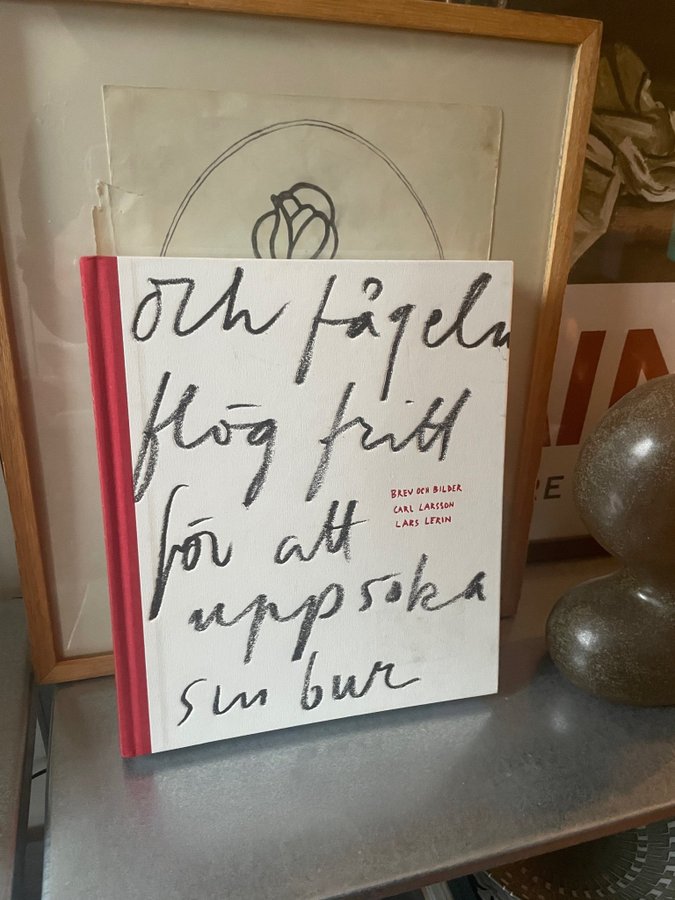 och fågeln
flög fritt
för att
uppsöka
sin bur
BREV OCH BILDER
CARL LARSSON
LARS LERIN